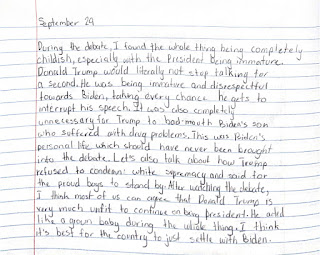 September 29
During the debate, I found the whole thing being completely
childish, especially with the President being immature.
Donald Trump would literally not stop talking for
a second. He was being immature and disrespectful
towards Biden, taking every chance he gets to
interrupt his speech. It was also completely
unnecessary for Trump to bad mouth Biden's son
who suffered with drug problems. This was Biden's
personal life which should have never been brought
into the debate. Let's also talk about how Trump
refused to condemn white supremacy and said for
the proud boys to stand by. After watching the debate,
I think most of us can agree that Donald Trump is
very much unfit to continue on being president. He acted
like a grown baby during the whole thing. I think
it's best for the country to just settle with Biden.